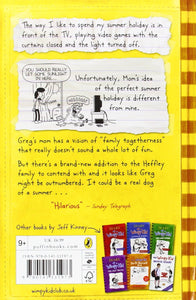 The way I like to spend my summer holiday is in
front of the TV, playing video games with the
curtains closed and the light turned off.
YOU SHOULD REALLY
LET SOME SUNLIGHT
IN HERE...
Unfortunately, Mom's idea
of the perfect summer
holiday is different
from mine.
Greg's mom has a vision of "family togetherness"
that really doesn't sound a whole lot of fun.
But there's a brand-new addition to the Heffley
family to contend with and it looks like Greg
might be outnumbered. It could be a real dog
of a summer . . .
"Hilarious" – Sunday Telegraph
Other books by Jeff Kinney:
9+
puffinbooks.com
FSC
wimpykidclub.co.uk